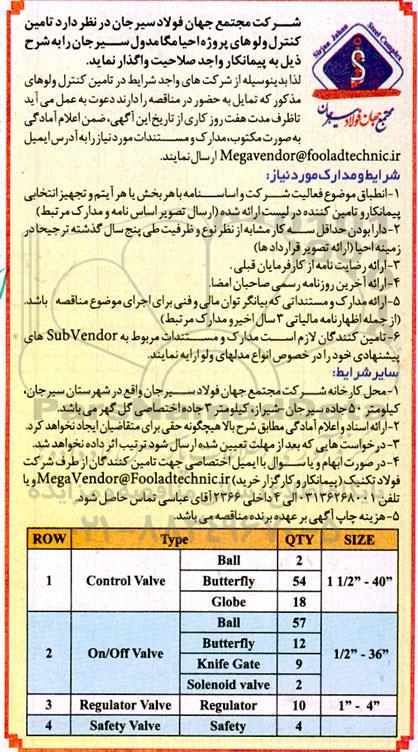 Sirjan Jahan Steel Complex
مجتمع جهان فولاد سیرجان
شرکت مجتمع جهان فولاد سیرجان در نظر دارد تامین
کنترل ولو های پروژه احیا مگا مدول سیرجان را به شرح
ذیل به پیمانکار واجد صلاحیت واگذار نماید.
لذا بدینوسیله از شرکت های واجد شرایط در تامین کنترل ولوهای
مذکور که تمایل به حضور در مناقصه را دارند دعوت به عمل می آید
تا ظرف مدت هفت روز کاری از تاریخ این آگهی، ضمن اعلام آمادگی
به صورت مکتوب، مدارک و مستندات مورد نیاز را به آدرس ایمیل
Megavendor@fooladtechnic.ir ارسال نمایند.
شرایط و مدارک مورد نیاز:
۱-انطباق موضوع فعالیت شرکت و اساسنامه با هر بخش یا هر آیتم و تجهیز انتخابی
پیمانکار و تامین کننده در لیست ارائه شده (ارسال تصویر اساس نامه و مدارک مرتبط)
۲-دارا بودن حداقل سه کار مشابه از نظر نوع و ظرفیت طی پنج سال گذشته ترجیحا در
زمینه احیا (ارائه تصویر قرارداد ها)
۳-ارائه رضایت نامه از کارفرمایان قبلی.
۴-ارائه آخرین روزنامه رسمی صاحبان امضا.
۵-ارائه مدارک و مستنداتی که بیانگر توان مالی و فنی برای اجرای موضوع مناقصه باشد.
(از جمله اظهارنامه مالیاتی ۳ سال اخیر و مدارک مرتبط)
۶-تامین کنندگان لازم است مدارک و مستندات مربوط به SubVendor های
پیشنهادی خود را در خصوص انواع مدلهای ولو ارایه نمایند.
سایر شرایط:
۱-محل کارخانه شرکت مجتمع جهان فولاد سیرجان واقع در شهرستان سیرجان،
کیلومتر ۵۰ جاده سیرجان -شیراز، کیلومتر ۳ جاده اختصاصی گل گهر می باشد.
۲-ارائه اسناد و اعلام آمادگی مطابق شرح بالا هیچگونه حقی برای متقاضیان ایجاد نخواهد کرد.
۳-درخواست هایی که بعد از مهلت تعیین شده ارسال شود ترتیب اثر داده نخواهد شد.
۴-در صورت ابهام و یا سوال با ایمیل اختصاصی جهت تامین کنندگان از طرف شرکت
فولاد تکنیک (پیمانکار و کارگزار خرید) MegaVendor@Fooladtechnic.ir و یا
تلفن ۰۳۱۳۶۲۶۸۰۰۱ الی ۴ داخلی ۲۳۶۶ آقای عباسی تماس حاصل شود.
۵-هزینه چاپ آگهی بر عهده برنده مناقصه می باشد.
ROW Type QTY SIZE
1 Control Valve Ball 2 1 1/2" - 40"
Butterfly 54
Globe 18
2 On/Off Valve Ball 57 1/2" - 36"
Butterfly 12
Knife Gate 9
Solenoid valve 2
3 Regulator Valve Regulator 10 1" - 4"
4 Safety Valve Safety 4